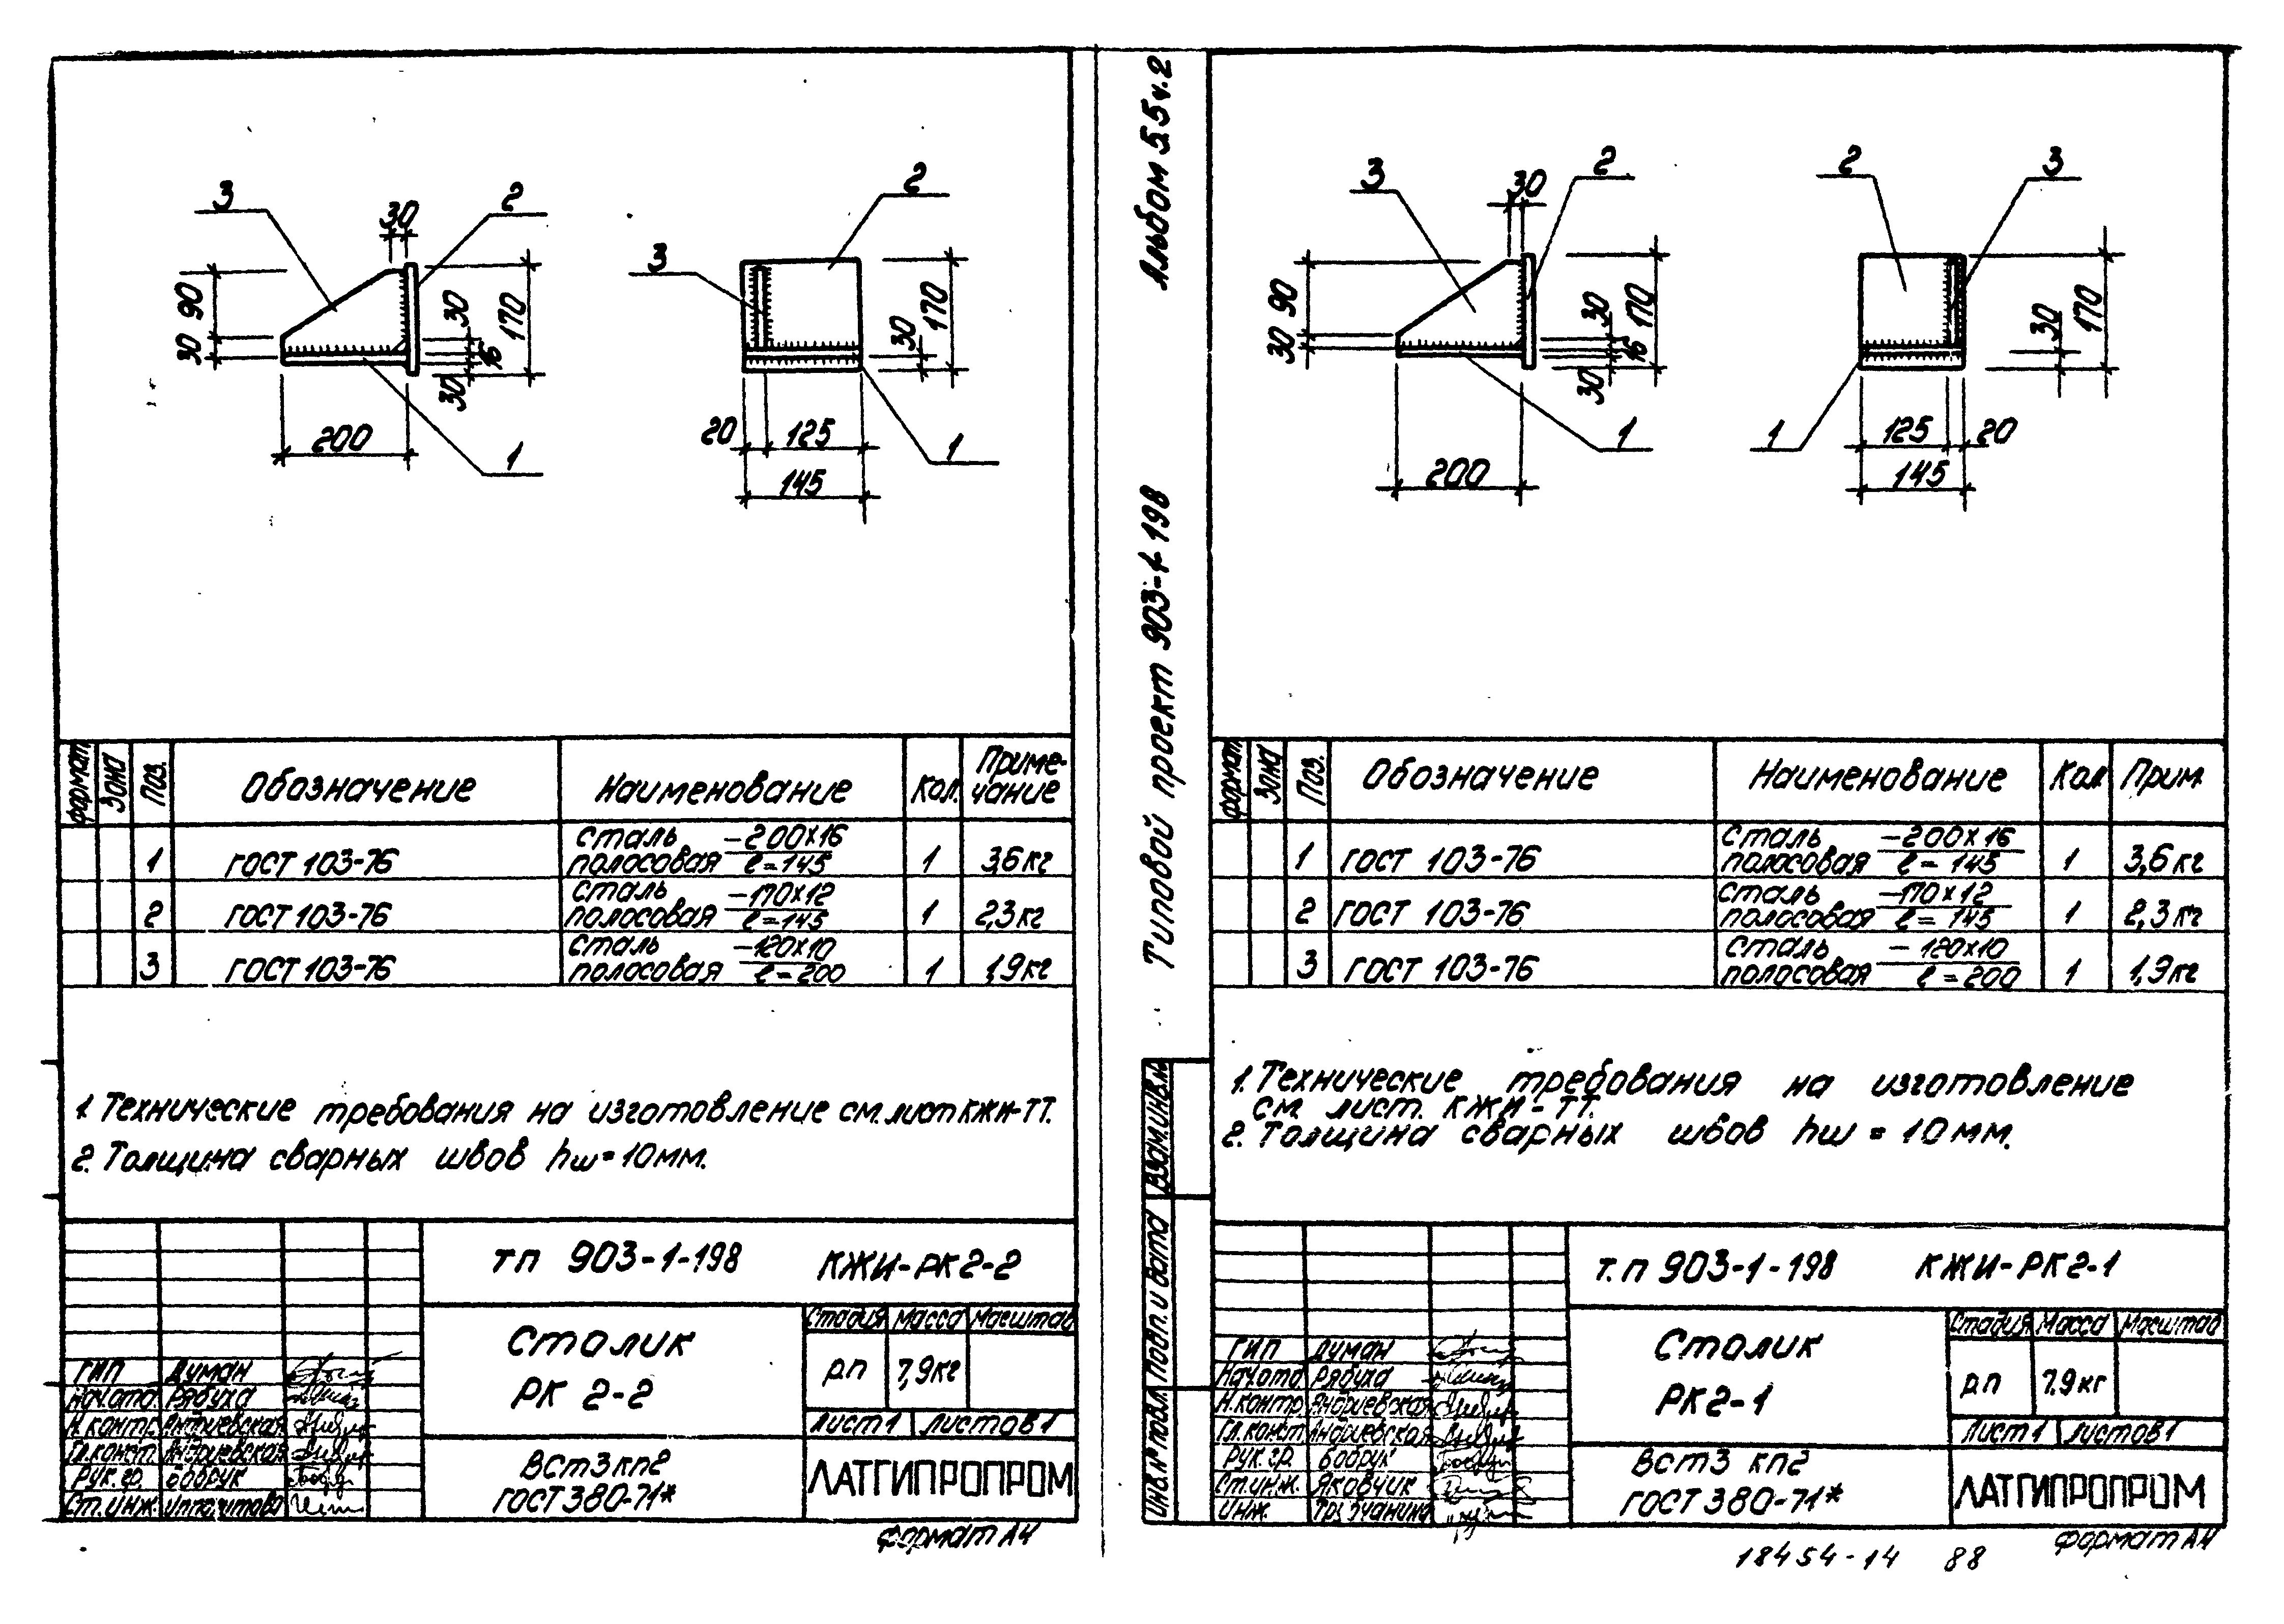 3
30
2
90
30
30
170
16
30
200
1
2
3
170
30
20
125
1
145
формат
Зона
Поз.
Обозначение
Наименование
Кол.
Приме-
чание
1 ГОСТ 103-76 сталь полосовая -200×16 ℓ=145 1 3,6кг
2 ГОСТ 103-76 сталь полосовая -170×12 ℓ=145 1 2,3кг
3 ГОСТ 103-76 сталь полосовая -120×10 ℓ=200 1 1,9кг
1. Технические требования на изготовление см. лист КЖИ-ТТ.
2. Толщина сварных швов hш=10мм.
ТП 903-1-198 КЖИ-РК2-2
Столик
РК 2-2
Стадия Масса Масштаб
РП 7,9кг
Лист 1 Листов 1
ВСт3кп2
ГОСТ 380-71*
ЛАТГИПРОПРОМ
ГИП Думан
Нач.отд. Рябуха
Н.контр. Андриевская
Гл.конст. Андриевская
Рук.гр. Бобрук
Ст.инж.
Формат А4
Альбом 5.5ч.2
Типовой проект 903-1-198
Взам.инв.н.
Подп. и дата
Инв.№ подл.
3
30
2
90
30
30
170
16
30
200
1
2
3
170
30
1
125
20
145
формат
Зона
Поз.
Обозначение
Наименование
Кол
Прим.
1 ГОСТ 103-76 Сталь полосовая -200×16 ℓ=145 1 3,6кг
2 ГОСТ 103-76 Сталь полосовая -170×12 ℓ=145 1 2,3кг
3 ГОСТ 103-76 Сталь полосовая -120×10 ℓ=200 1 1,9кг
1. Технические требования на изготовление
см. лист. КЖИ-ТТ.
2. Толщина сварных швов hш = 10мм.
т.п 903-1-198 КЖИ-РК2-1
Столик
РК2-1
Стадия Масса Масштаб
РП 7.9кг
Лист 1 Листов 1
ВСт3 кп2
ГОСТ 380-71*
ЛАТГИПРОПРОМ
ГИП Думан
Нач.отд Рябуха
Н.контр. Андриевская
Гл.конст. Андриевская
Рук.гр. Бобрук
Ст.инж. Яковчик
Инж.
Формат А4
18454-14 88